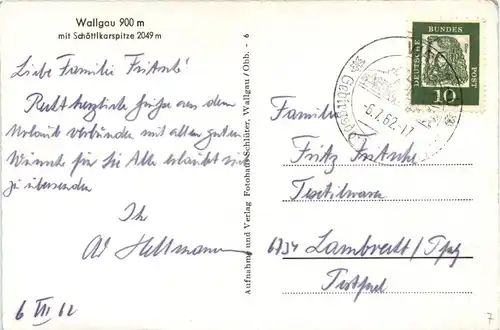 Wallgau 900 m
mit Schöttlkarspitze 2049 m
Liebe Familie Fritsche!
Recht herzliche Grüsse aus dem
Urlaub verbunden mit allen guten
Wünsche für Sie Alle erlaubt sich
zu übersenden
Ihr
Hellmann
6 VII 62
Aufnahme und Verlag Fotohaus Schlüter, Wallgau/Obb. - 6
DEUTSCHE BUNDES POST
10
-6.7.62.-17
Familie
Fritz Fritsche
Textilwaren
6734 Lambrecht/Pfalz
7